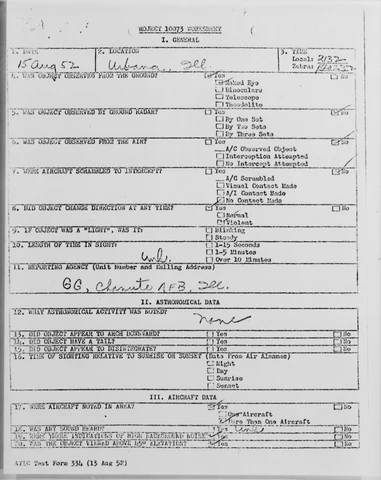 PROJECT 10073 WORKSHEET
I. GENERAL
1. DATE
15 Aug 52
2. LOCATION
Urbana, Ill
3. TIME
Local: 2132
Zebra:
4. WAS OBJECT OBSERVED FROM THE GROUND? Yes No
Naked Eye
Binoculars
Telescope
Theodolite
5. WAS OBJECT OBSERVED BY GROUND RADAR? Yes No
By One Set
By Two Sets
By Three Sets
6. WAS OBJECT OBSERVED FROM THE AIR? Yes No
A/C Observed Object
Interception Attempted
No Intercept Attempted
7. WERE AIRCRAFT SCRAMBLED TO INTERCEPT? Yes No
A/C Scrambled
Visual Contact Made
A/I Contact Made
No Contact Made
8. DID OBJECT CHANGE DIRECTION AT ANY TIME? Yes No
Normal
Violent
9. IF OBJECT WAS A "LIGHT", WAS IT: Blinking
Steady
10. LENGTH OF TIME IN SIGHT: 1-15 Seconds
1-15 Minutes
Unk. Over 10 Minutes
11. REPORTING AGENCY (Unit Number and Mailing Address)
GG, Chanute AFB, Ill.
II. ASTRONOMICAL DATA
12. WHAT ASTRONOMICAL ACTIVITY WAS NOTED?
None
13. DID OBJECT APPEAR TO ARCH DOWNWARD? Yes No
14. DID OBJECT HAVE A TAIL? Yes No
15. DID OBJECT APPEAR TO DISINTEGRATE? Yes No
16. TIME OF SIGHTING RELATIVE TO SUNRISE OR SUNSET (Data From Air Almanac)
Night
Day
Sunrise
Sunset
III. AIRCRAFT DATA
17. WERE AIRCRAFT NOTED IN AREA? Yes No
One Aircraft
More Than One Aircraft
18. WAS ANY SOUND HEARD? Yes Unk No
19. WERE THERE INDICATIONS OF HIGH BACKGROUND NOISE Yes No
20. WAS THE OBJECT VIEWED ABOVE 45° ELEVATION? Yes No
ATIC Test Form 334 (13 Aug 52)